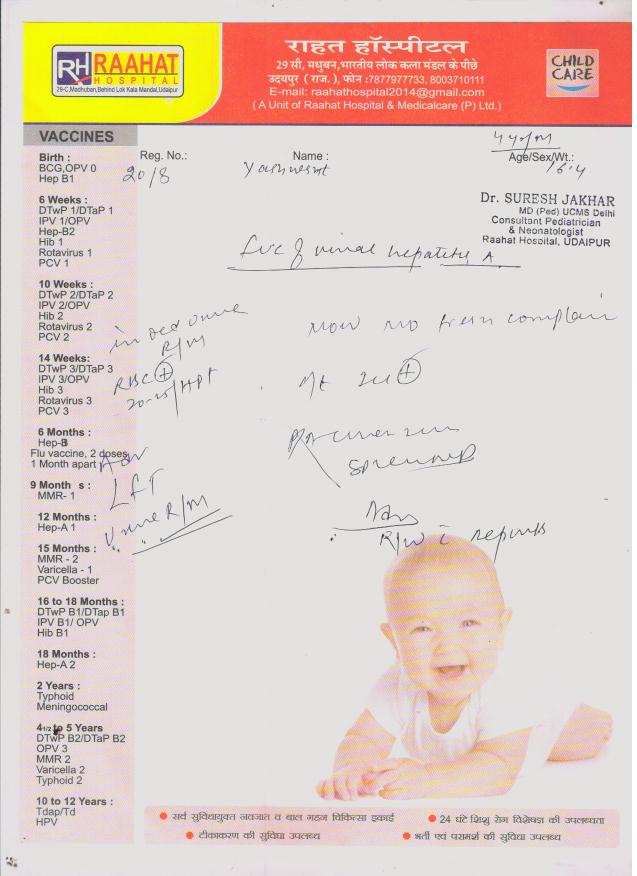 RH RAAHAT
HOSPITAL
29-C,Madhuban,Behind Lok Kala Mandal,Udaipur
राहत हॉस्पीटल
29 सी, मधुबन,भारतीय लोक कला मंडल के पीछे
उदयपुर ( राज.), फोन :7877977733, 8003710111
E-mail: raahathospital2014@gmail.com
( A Unit of Raahat Hospital & Medicalcare (P) Ltd.)
CHILD
CARE
VACCINES
Birth :
BCG,OPV 0
Hep B1
Reg. No.:
20/8
Name :
Age/Sex/Wt.:
Dr. SURESH JAKHAR
MD (Ped) UCMS Delhi
Consultant Pediatrician
& Neonatologist
Raahat Hospital, UDAIPUR
6 Weeks :
DTwP 1/DTaP 1
IPV 1/OPV
Hep-B2
Hib 1
Rotavirus 1
PCV 1
of viral hepatitis A
10 Weeks :
DTwP 2/DTaP 2
IPV 2/OPV
Hib 2
Rotavirus 2
PCV 2
R/M
Now no fresh complain
14 Weeks:
DTwP 3/DTaP 3
IPV 3/OPV
Hib 3
Rotavirus 3
PCV 3
RBC +
20-25/HPF
6 Months :
Hep-B
Flu vaccine, 2 doses
1 Month apart
Adv
LFT
Urine R/M
9 Month s :
MMR- 1
12 Months :
Hep-A 1
Adv
R/W c reports
15 Months :
MMR - 2
Varicella - 1
PCV Booster
16 to 18 Months :
DTwP B1/DTap B1
IPV B1/ OPV
Hib B1
18 Months :
Hep-A 2
2 Years :
Typhoid
Meningococcal
4 1/2 to 5 Years
DTwP B2/DTaP B2
OPV 3
MMR 2
Varicella 2
Typhoid 2
10 to 12 Years :
Tdap/Td
HPV
● सर्व सुविधायुक्त नवजात व बाल गहन चिकित्सा इकाई ● 24 घंटे शिशु रोग विशेषज्ञ की उपलब्धता
● टीकाकरण की सुविधा उपलब्ध ● भर्ती एवं परामर्श की सुविधा उपलब्ध